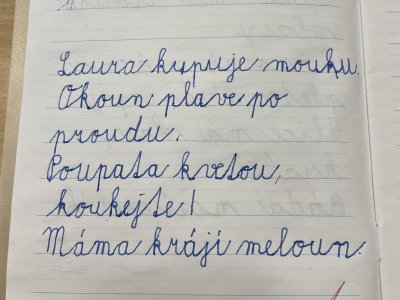 Laura kupuje mouku.
Okoun plave po
proudu.
Poupata kvetou,
koukejte!
Máma krájí meloun.